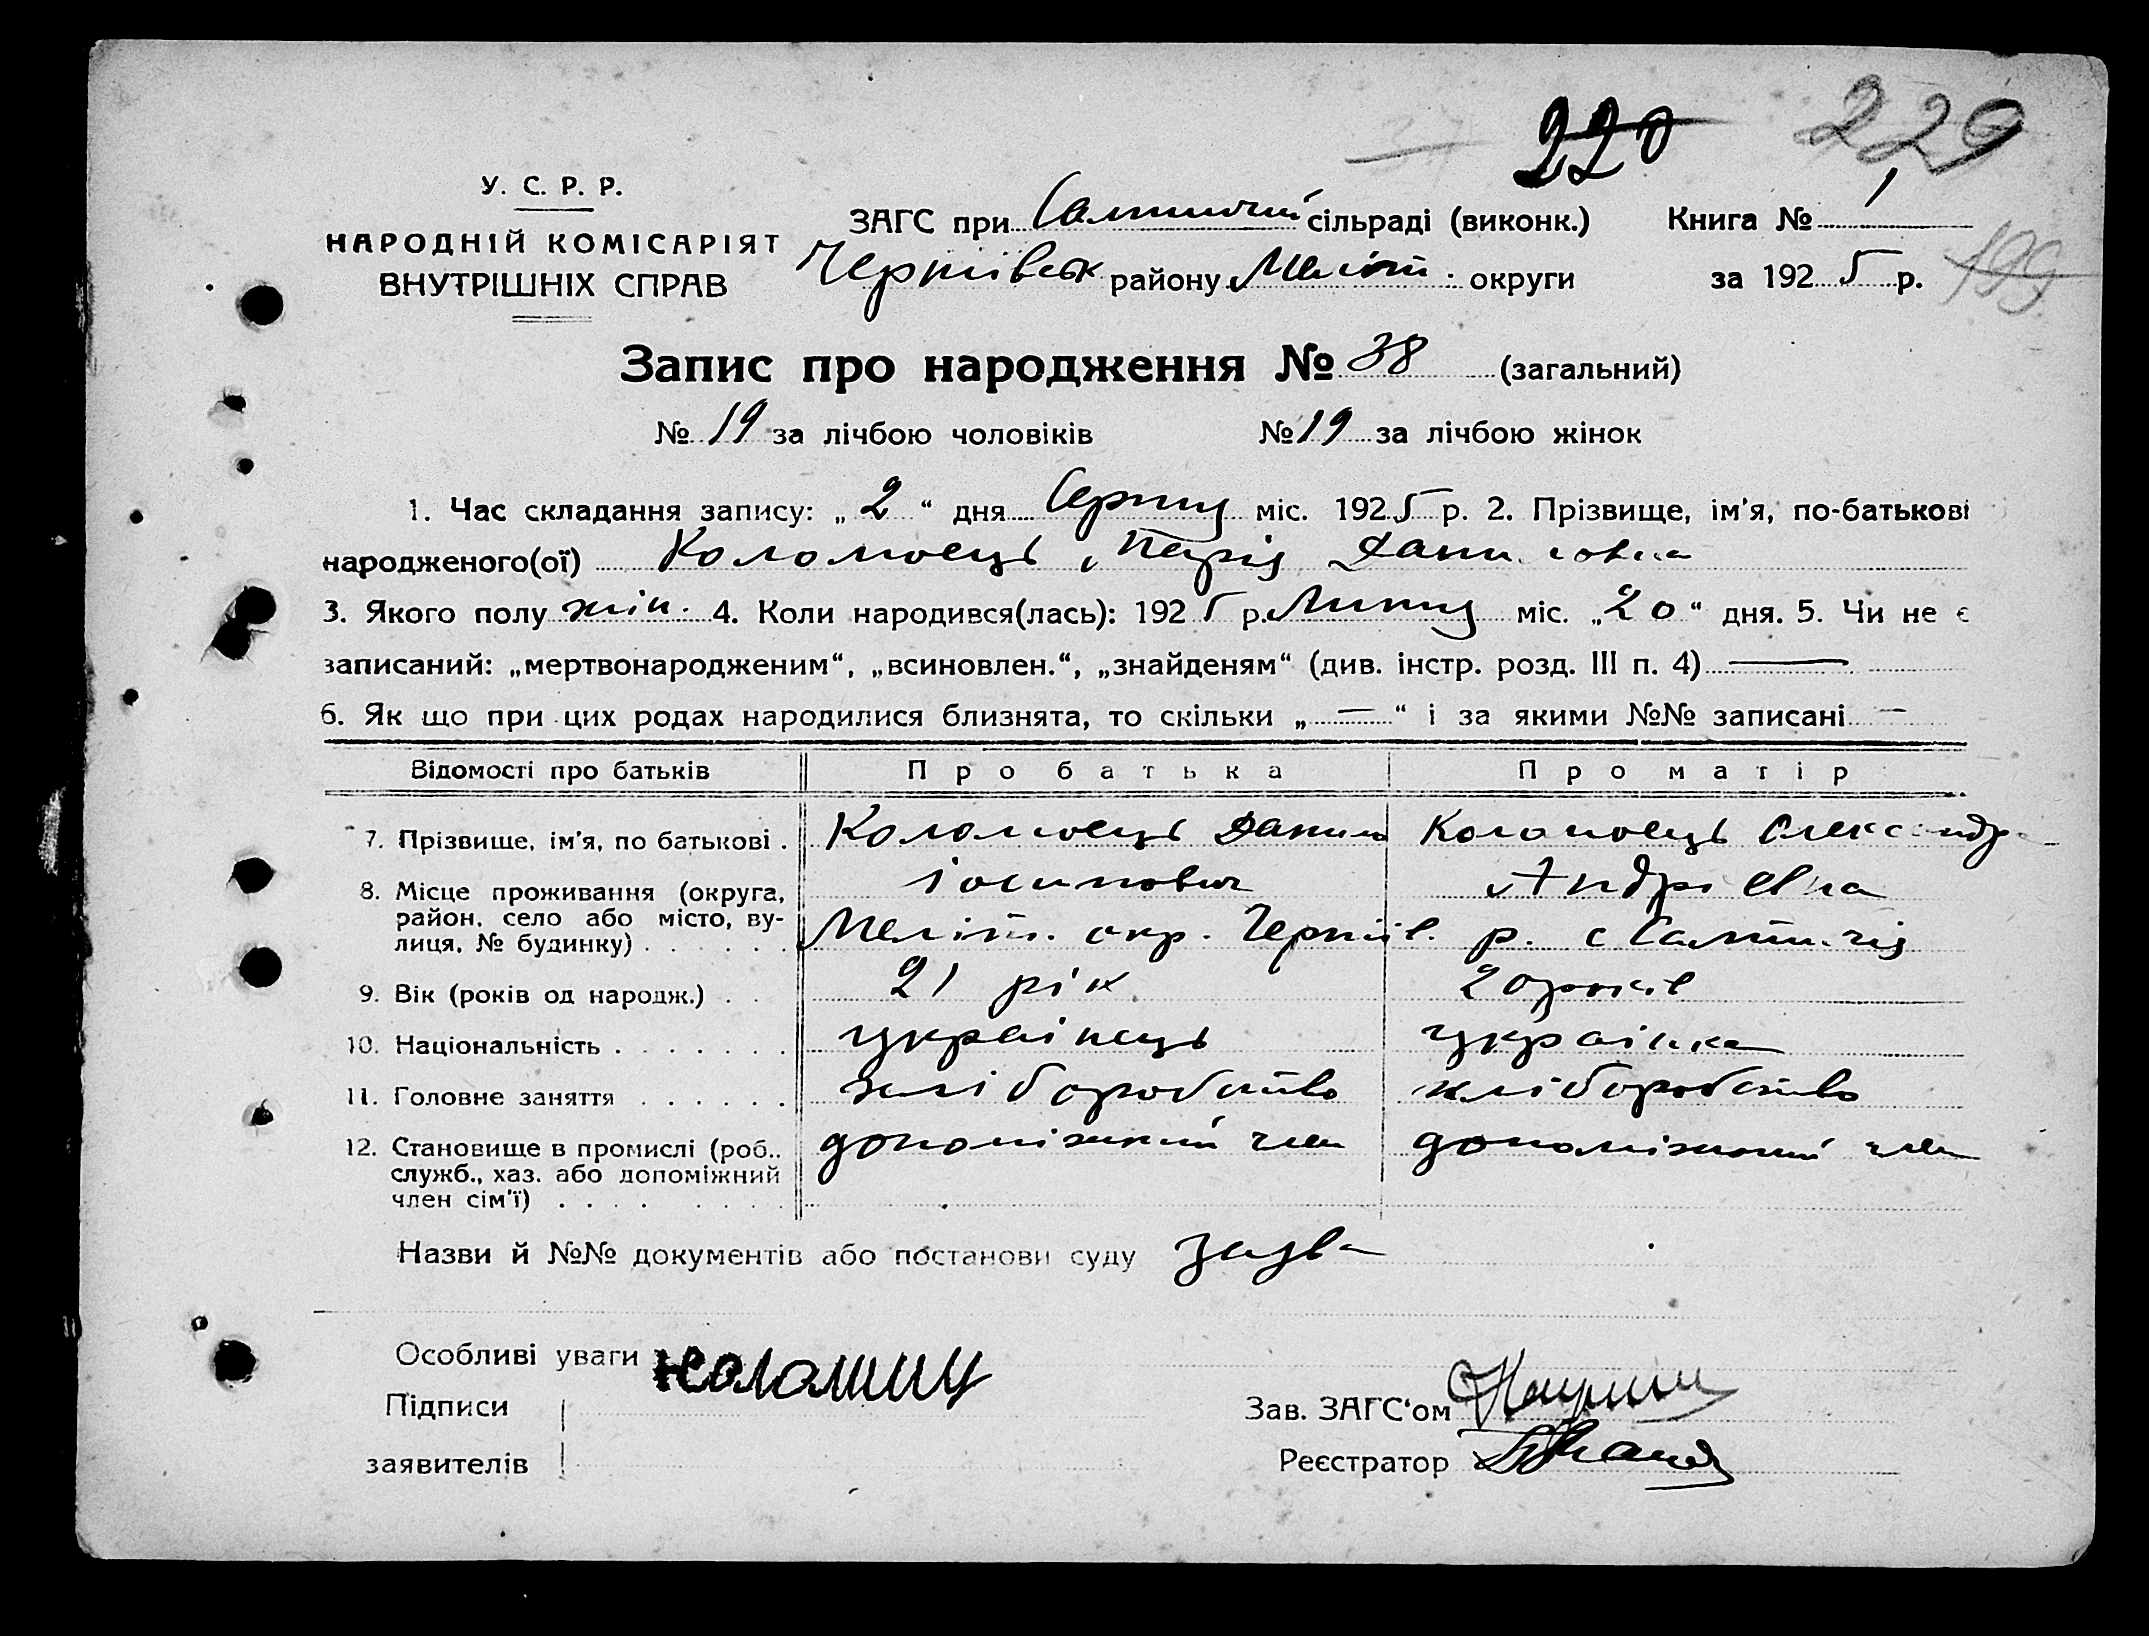 220 229
У. С. Р. Р.
НАРОДНІЙ КОМІСАРІЯТ
ВНУТРІШНІХ СПРАВ
ЗАГС при Салтичий сільраді (виконк.) Книга № 1
Чернівськ району Меліт. округи за 1925 р. 199
Запис про народження № 38 (загальний)
№ 19 за лічбою чоловіків № 19 за лічбою жінок
1. Час складання запису: „2“ дня Серпня міс. 1925 р. 2. Прізвище, ім'я, по-батькові
народженого(ої) Коломоець Марія Даниловна
3. Якого полу жін. 4. Коли народився(лась): 1925 р. Липня міс. „20“ дня. 5. Чи не є
записаний: „мертвонародженим“, „всиновлен.“, „знайденям“ (див. інстр. розд. III п. 4) —
6. Як що при цих родах народилися близнята, то скільки „—“ і за якими №№ записані —
Відомості про батьків Про батька Про матір
7. Прізвище, ім'я, по батькові . Коломоець Данило Коломоець Олександра
Іосипович Андріевна
8. Місце проживання (округа,
район, село або місто, ву-
лиця, № будинку) . . . . . . Меліт. окр. Чернів. р. с Салтичія
9. Вік (років од народж.) . . 21 рік 20 років
10. Національність . . . . . . . українець українка
11. Головне заняття . . . . . . хліборобство хліборобство
12. Становище в промислі (роб.. допоміжний член допоміжний член
служб., хаз. або допоміжний
член сім'ї) . . . . . . . .
Назви й №№ документів або постанови суду заява
Особливі уваги
Підписи
заявителів
Зав. ЗАГС‘ом
Реєстратор